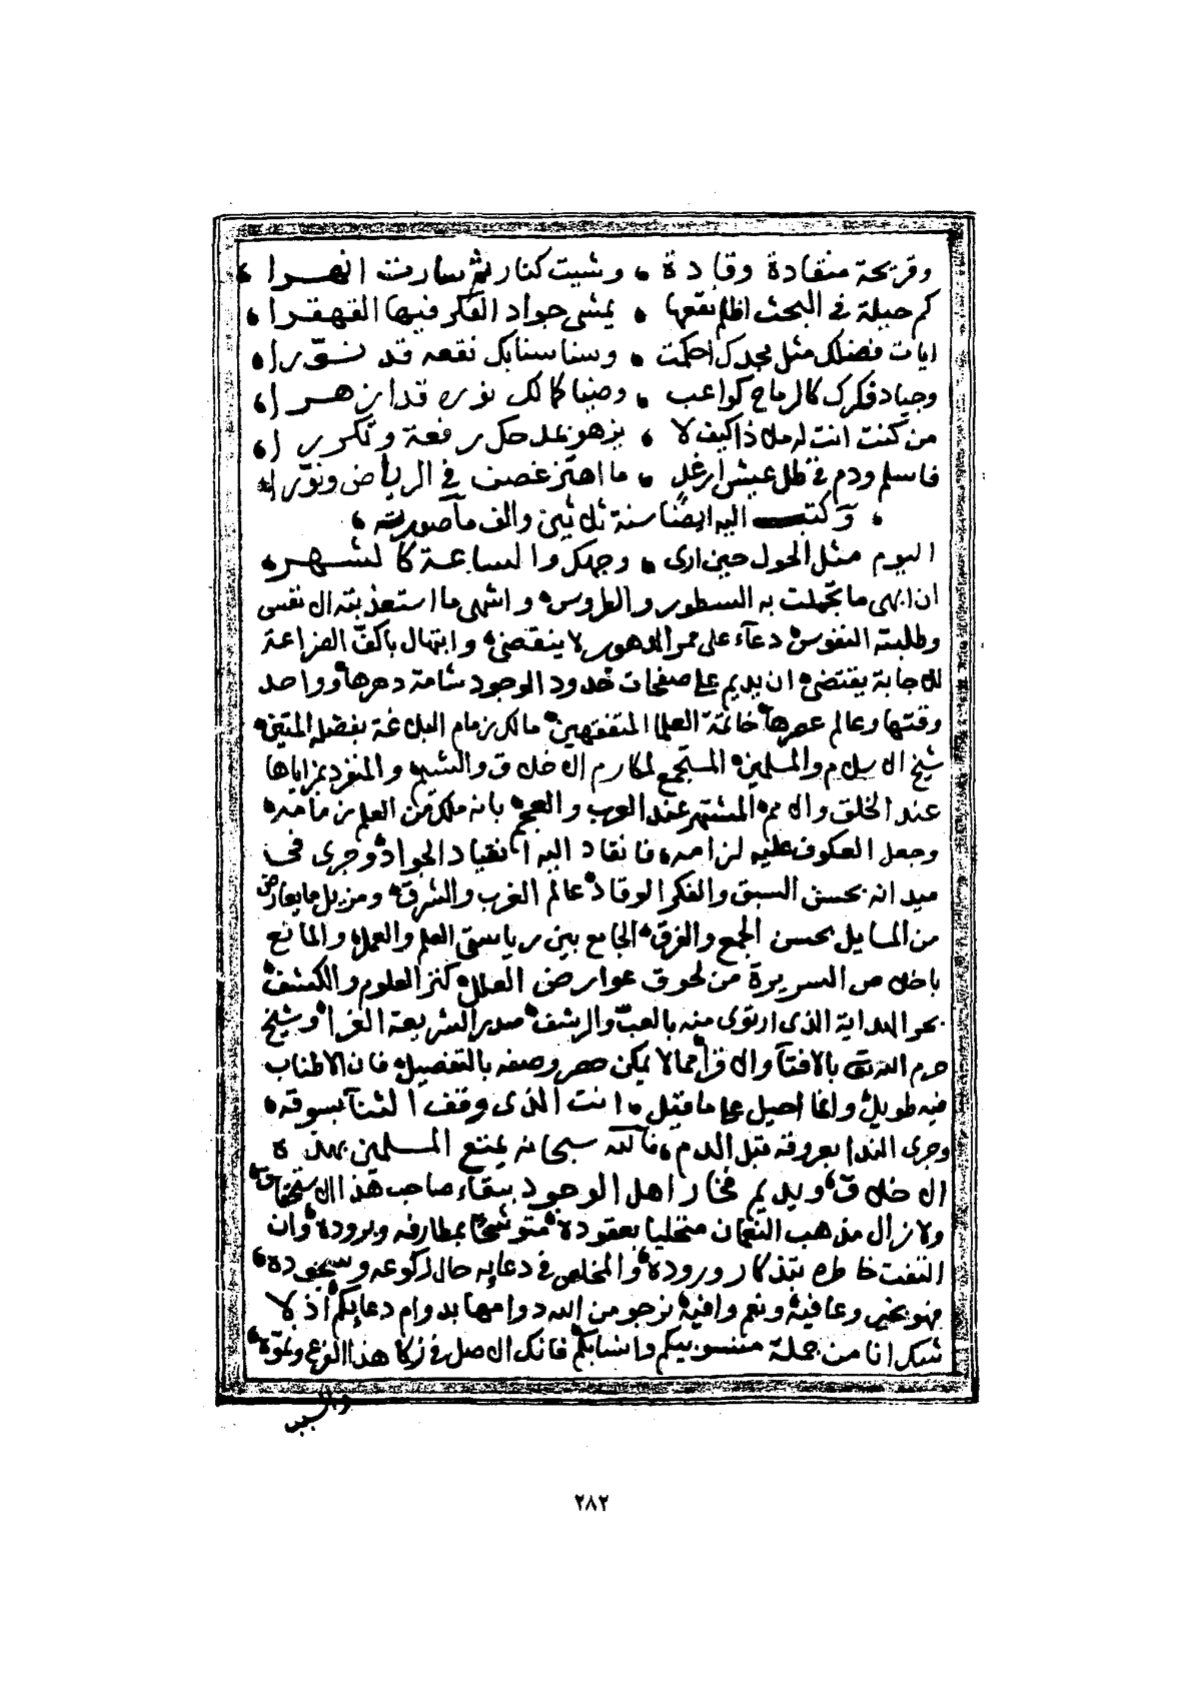 وقريحة منقادة وقادة ، وشبت كنار ثم سارت انهرا ،
كم حيلة في البحث اظلم نقعها ، يمشى جواد الفكر فيها القهقرا ،
ايات فضلك مثل مجدك احكمت ، وسنا سنابك نقعه قد نورا ،
وجياد فكرك كالرماح كواعب ، وضيا كمالك نوره قد ازهرا ،
من كنت انت له ملاذا كيف لا ، يزهو على حل رفعة وتكررا ،
فاسلم ودم في ظل عيش ارغد ، ما اهتز غصن في الرياض ونورا ،
، وكتب اليه ايضا سنة ثلاثين والف ما صورته ،
اليوم مثل الحول حين ارى ، وجهك والساعة كالشهر ،
ان ابهى ما تجملت به السطور والطروس، واشهى ما استعذبته الانفس
وطلبته النفوس، دعآء على ممر الدهور لا ينقضى، وابتهال باكف الضراعة
للاجابة يقتضى، ان يديم على صفحات خدود الوجود شامة دهرها، وواحد
وقتها وعالم عصرها، خاتمة العلما المتفقهين، مالك زمام البلاغة بفضله المتين،
شيخ الاسلام والمسلمين، المستجمع لمكارم الاخلاق والشيم، والمنفرد بمزاياها
عند الخلق والامم، المشتهر عند العرب والعجم، بانه ملك من العلم زمامه،
وجعل العكوف عليه لزامه، فانقاد اليه انقياد الجواد، وجرى في
ميدانه بحسن السبق والفكر الوقاد، عالم الغرب والشرق، ومزيل ما يعارض
من المسايل بحسن الجمع والفرق، الجامع بين رياستى العلم والعمل، والمانع
باخلاص السريرة من لحوق عوارض العلل، كنز العلوم والكشف،
بحر الهداية الذى ارتوى منه بالعب والرشف، صدر الشريعة الغرا، وشيخ
حرم بالافتآ والاقرا، مما لا يمكن حصر وصفه بالتفصيل، فان الاطناب
فيه طويل، وانما احيل على ما قيل، انت الذى وقف الثنآ بسوقه،
وجرى الندا بعروقه قبل الدم، فالله سبحانه يمتع المسلمين بهذه
الاخلاق، ويديم فخار اهل الوجود ببقآء صاحب هذا الاستحقاق،
ولا زال مذهب النعمان متحليا بعقوده، متوشحا بمطارفه وبروده، وان
التفت خاطره بتذكار وروده، والمخلص في دعايه حال ركوعه وسجوده،
فهو بخير وعافية، ونعم وافية، نرجو من الله دوامها بدوام دعايكم، اذ لا
شك انا من جملة منسوبيكم وانشابكم، فانك الاصل في زكا هذا الفرع ونموه،
والسبب
٢٨٢